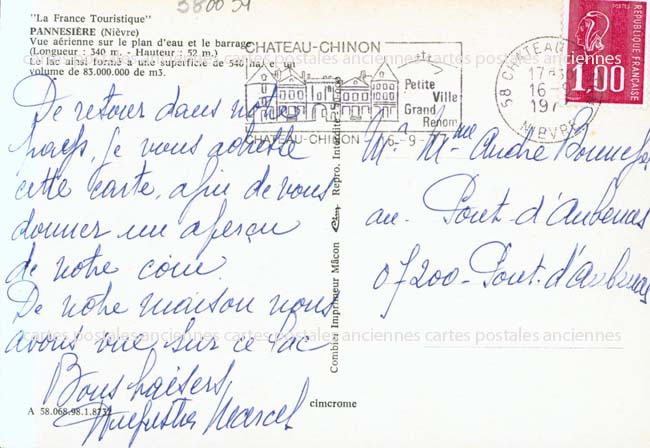 580034
"La France Touristique"
PANNESIÈRE (Nièvre)
Vue aérienne sur le plan d'eau et le barrage
(Longueur : 340 m. - Hauteur : 52 m.)
Le lac ainsi formé a une superficie de 540 ha et un
volume de 83.000.000 de m3.
De retour dans notre
pays, je vous adresse
cette carte, afin de vous
donner un aperçu
de notre coin.
De notre maison nous
avons vue sur ce lac
Bons baisers
Marcel
A 58.068.98.1.8732
cimcrome
Combier Imprimeur Mâcon
Repro. Interdite
CHATEAU-CHINON
Petite
Ville
Grand
Renom
CHATEAU-CHINON
6-9
58 CHATEAU
17H30
16-9
197
NIEVRE
1,00
REPUBLIQUE FRANÇAISE
Mr Mme André
au Pont-d'Aubenas
07200-Pont-d'Aubenas
cartes postales anciennes cartes postales anciennes cartes postales anciennes
cartes postales anciennes cartes postales anciennes cartes postales anciennes